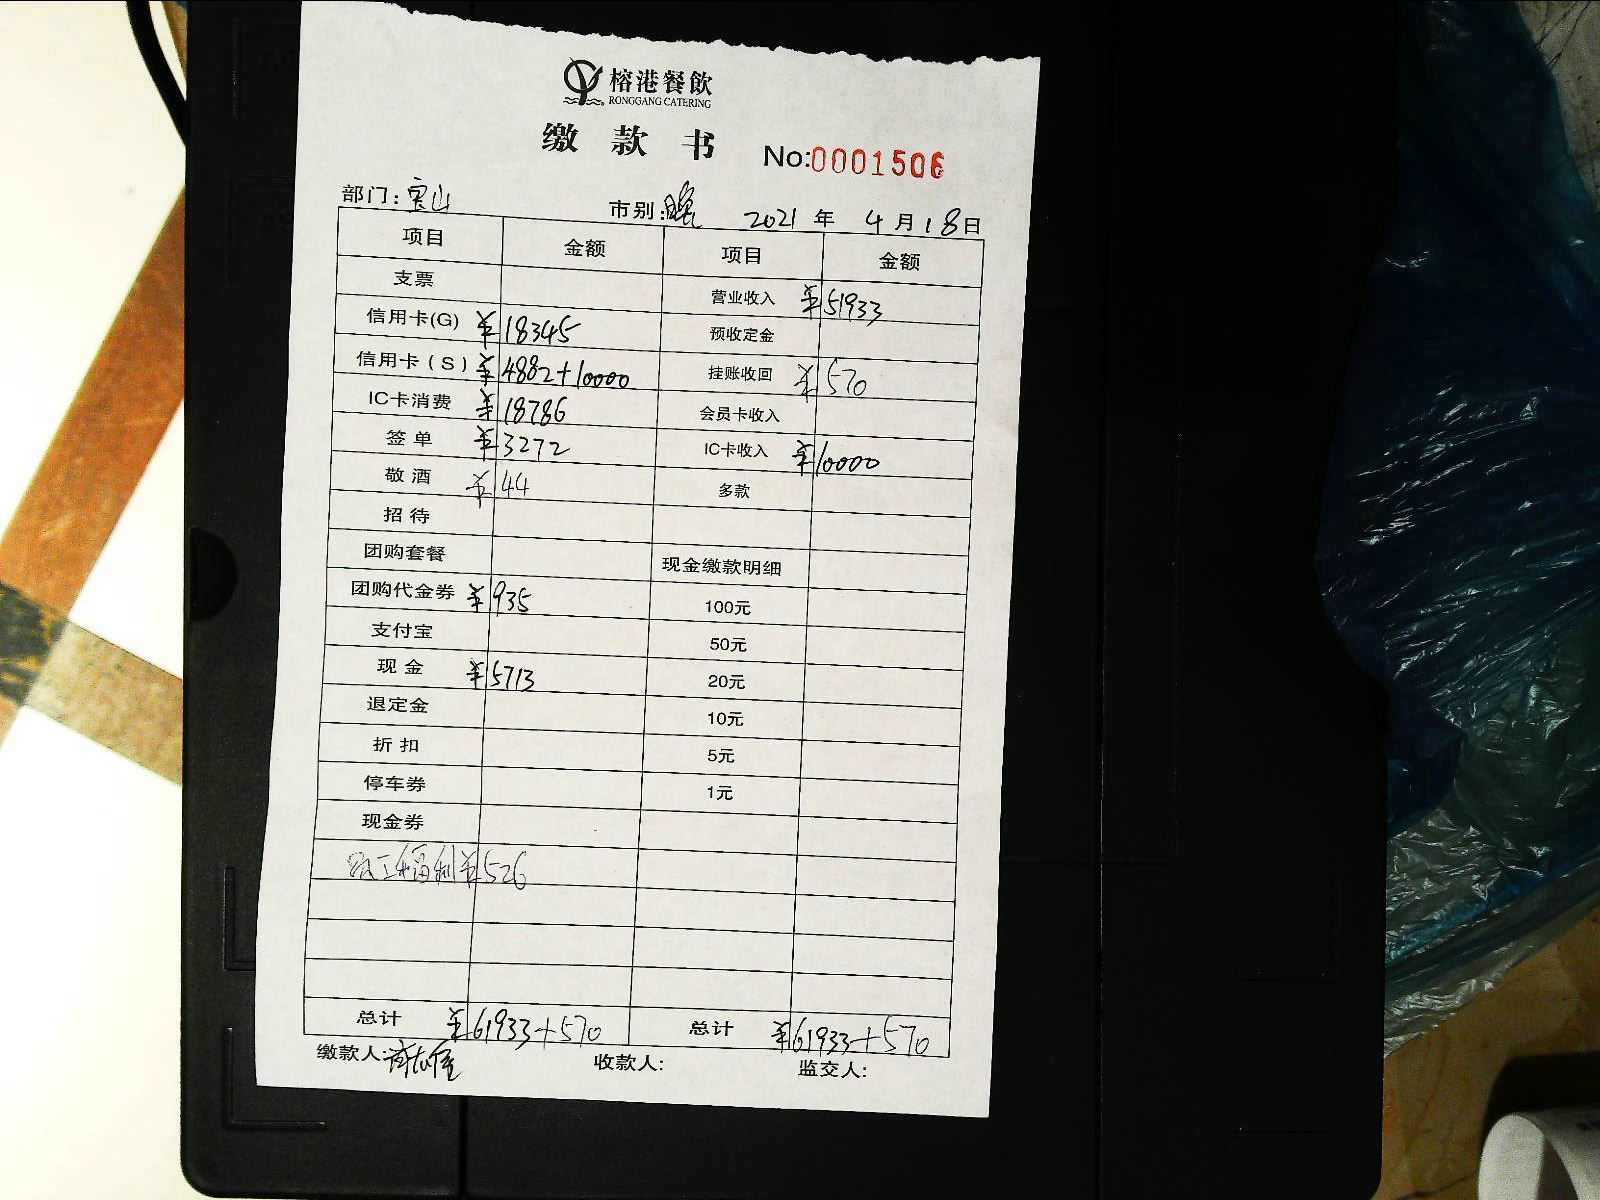 榕港餐飲
RONGGANG CATERING
缴 款 书
No:0001506
部门:宝山 市别:晚 2021 年 4 月 18 日
项目 金额 项目 金额
支票 营业收入 ¥51933
信用卡(G) ¥18345 预收定金
信用卡(S) ¥4882+10000 挂账收回 ¥570
IC卡消费 ¥18786 会员卡收入
签单 ¥3272 IC卡收入 ¥10000
敬酒 ¥44 多款
招待
团购套餐 现金缴款明细
团购代金券 ¥935 100元
支付宝 50元
现金 ¥5713 20元
退定金 10元
折扣 5元
停车券 1元
现金券
员工福利 ¥526
总计 ¥61933+570 总计 ¥61933+570
缴款人: 收款人: 监交人: